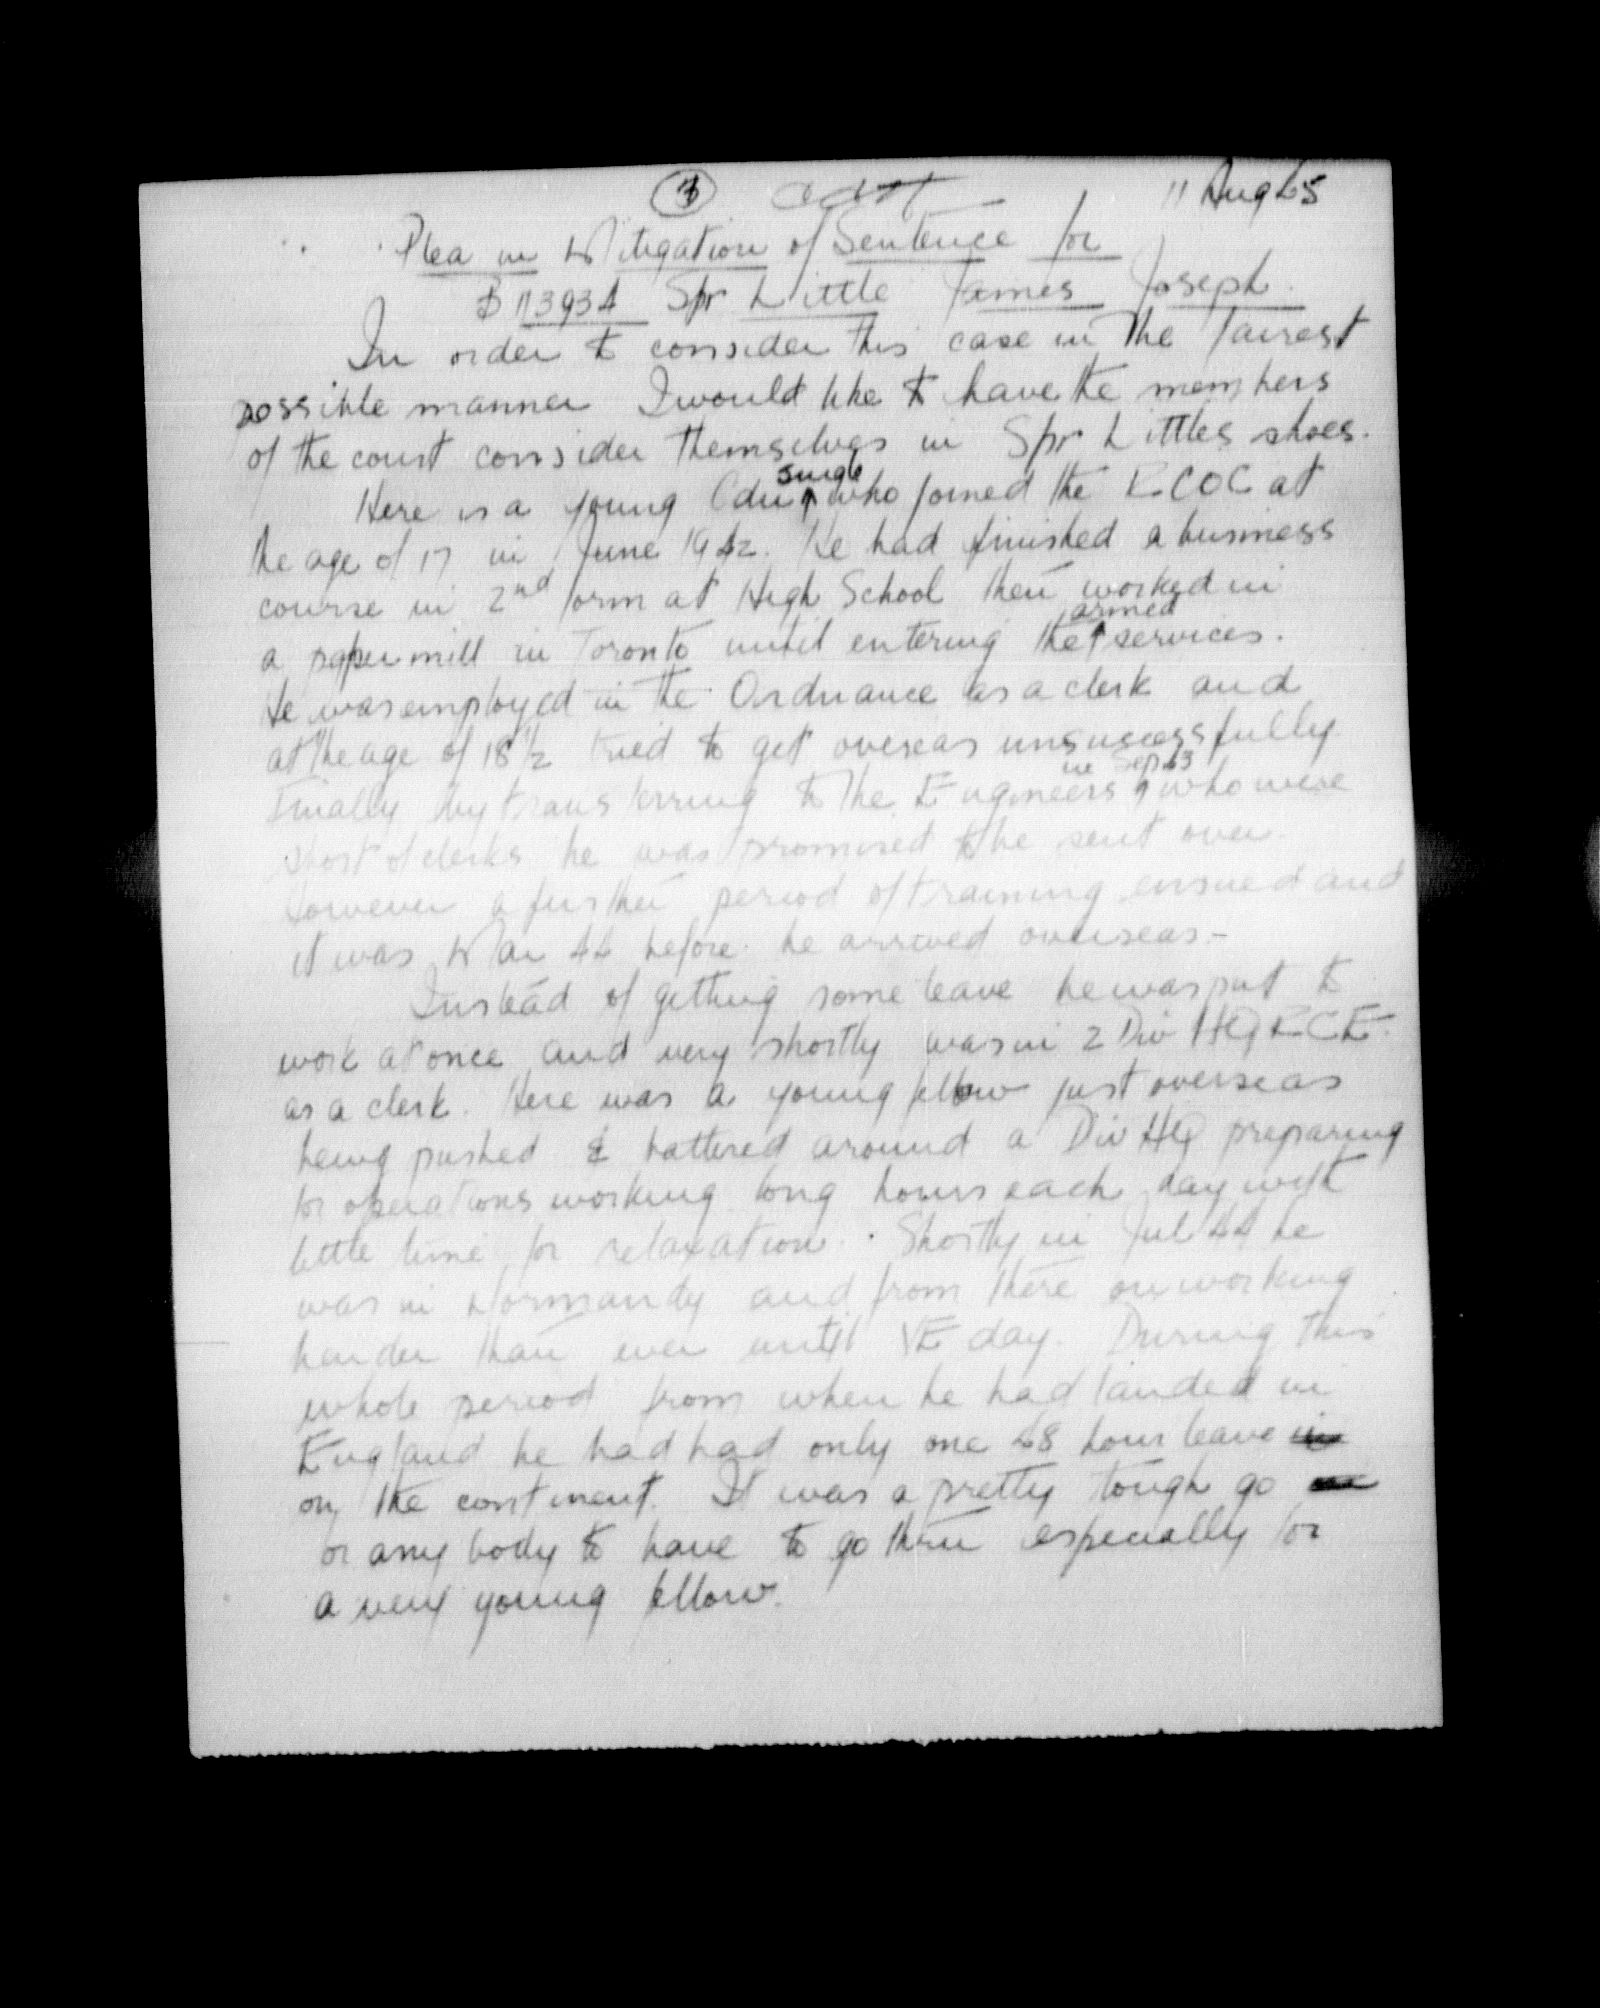 11 Aug 45
Plea in Mitigation of Sentence for
B 113934 Spr Little James Joseph.
In order to consider this case in the fairest
possible manner I would like to have the members
of the court consider themselves in Spr Littles shoes.
Here is a young Cdn single who joined the RCOC at
the age of 17 in June 1942. He had finished a business
course in 2nd form at High School then worked in
a paper mill in Toronto until entering the armed services.
He was employed in the Ordnance as a clerk and
at the age of 18 1/2 tried to get overseas unsucessfully
Finally by transferring to the Engineers in Sep 43 who were
short of clerks he was promised to be sent over.
However a further period of training ensued and
it was Mar 44 before he arrived overseas -
Instead of getting some leave he was put to
work at once and very shortly was in 2 Div HQ RCE.
as a clerk. Here was a young fellow just overseas
being pushed & battered around a Div HQ preparing
for operations working long hours each day with
little time for relaxation. Shortly in Jul 44 he
was in Normandy and from there on working
harder than ever until VE day. During this
whole period from when he had landed in
England he had had only one 48 hour leave in
on the continent. It was a pretty tough go
for any body to have to go thru especially for
a very young fellow.